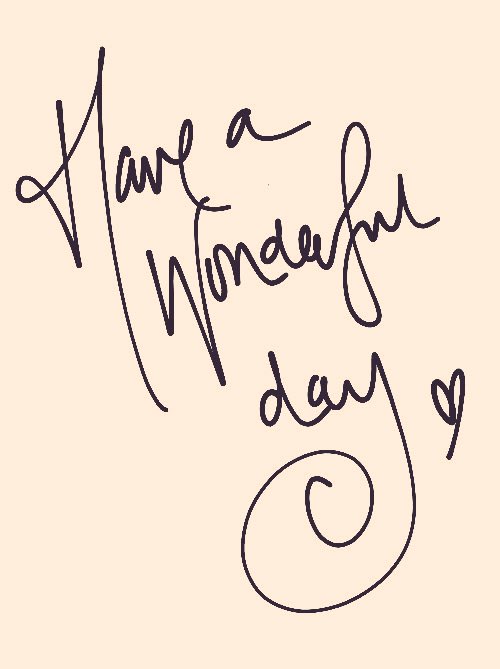 Have a
Wonderful
day ♡